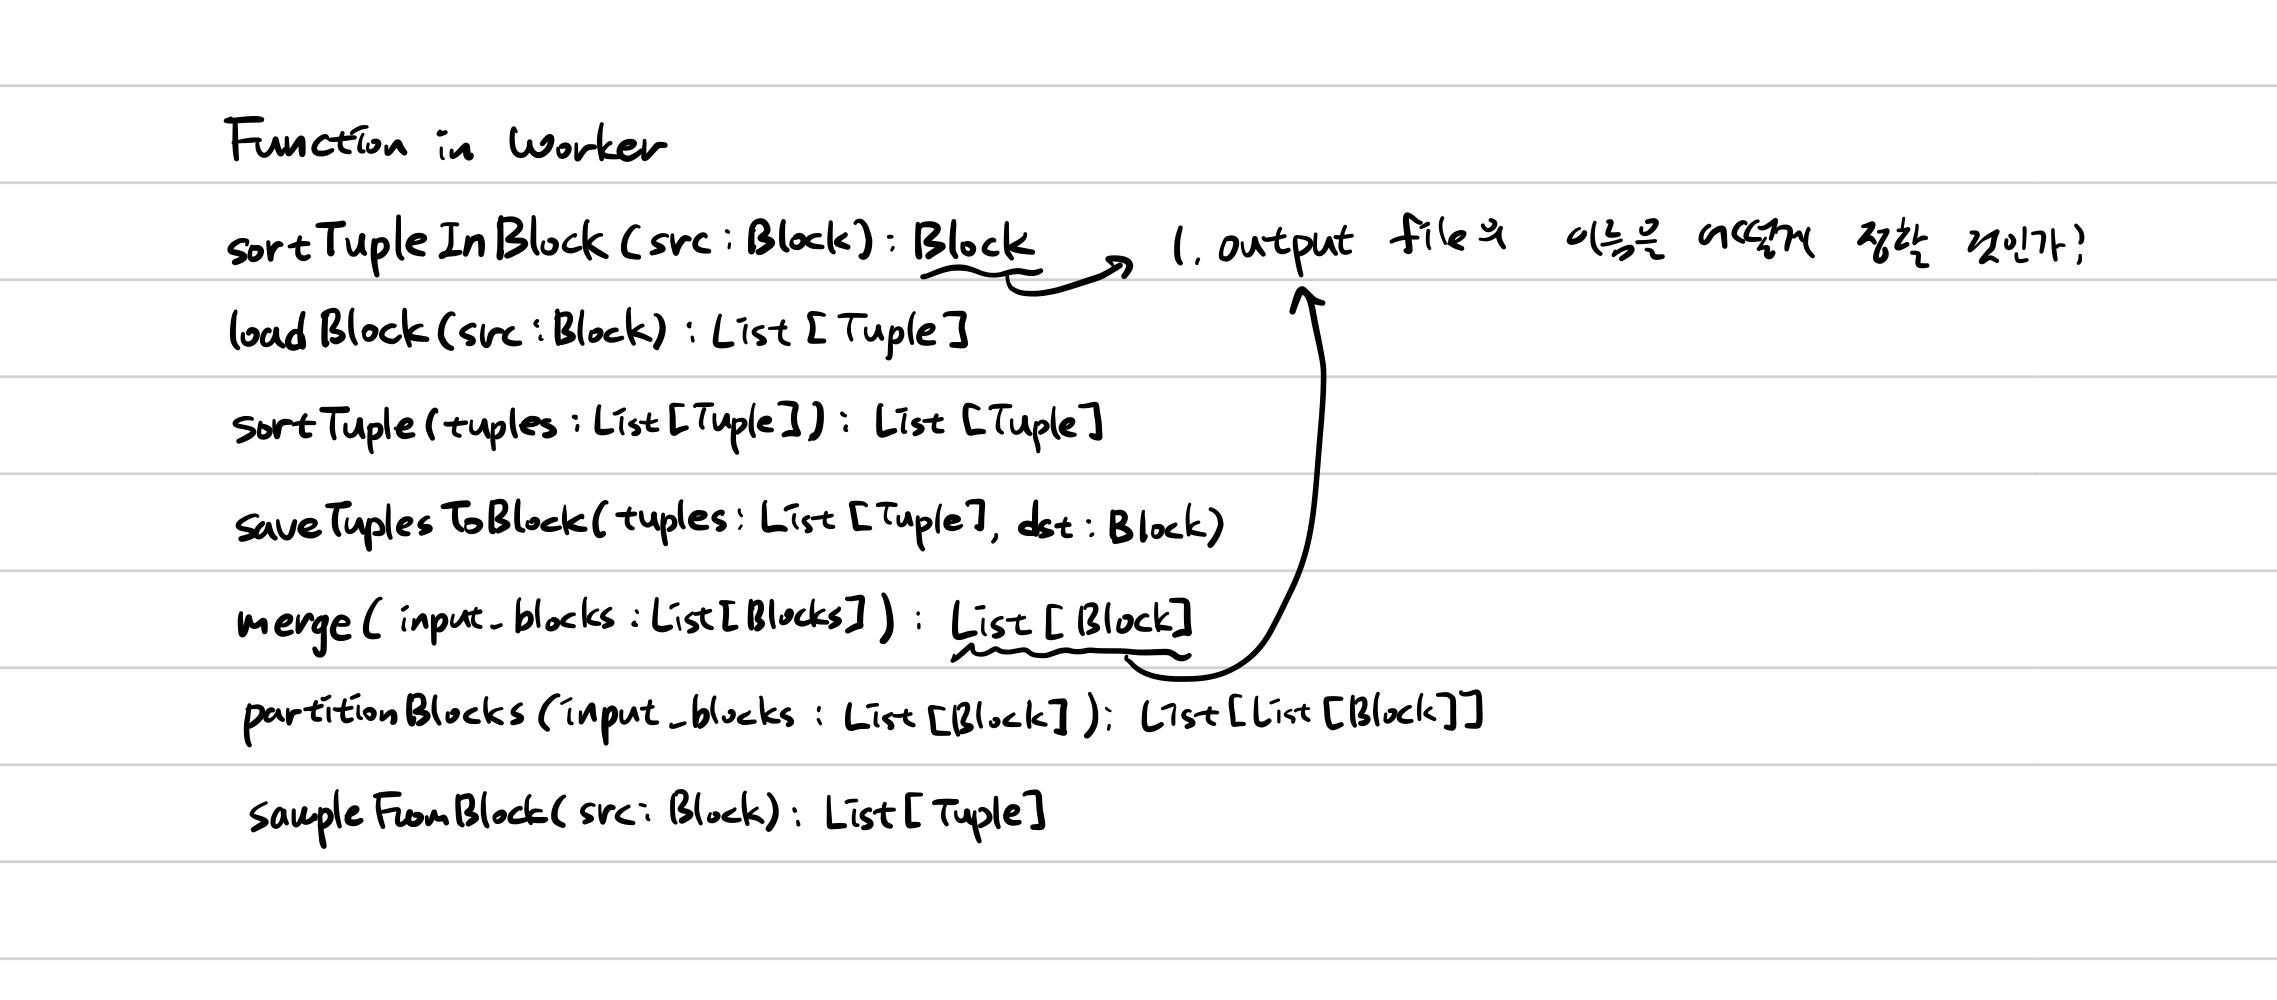 Function in Worker
sortTupleInBlock(src: Block): Block 1. output file의 이름은 어떻게 정할 것인가?
loadBlock(src: Block): List[Tuple]
sortTuple(tuples: List[Tuple]): List[Tuple]
saveTuplesToBlock(tuples: List[Tuple], dst: Block)
merge(input_blocks: List[Blocks]): List[Block]
partitionBlocks(input_blocks: List[Block]): List[List[Block]]
sampleFromBlock(src: Block): List[Tuple]